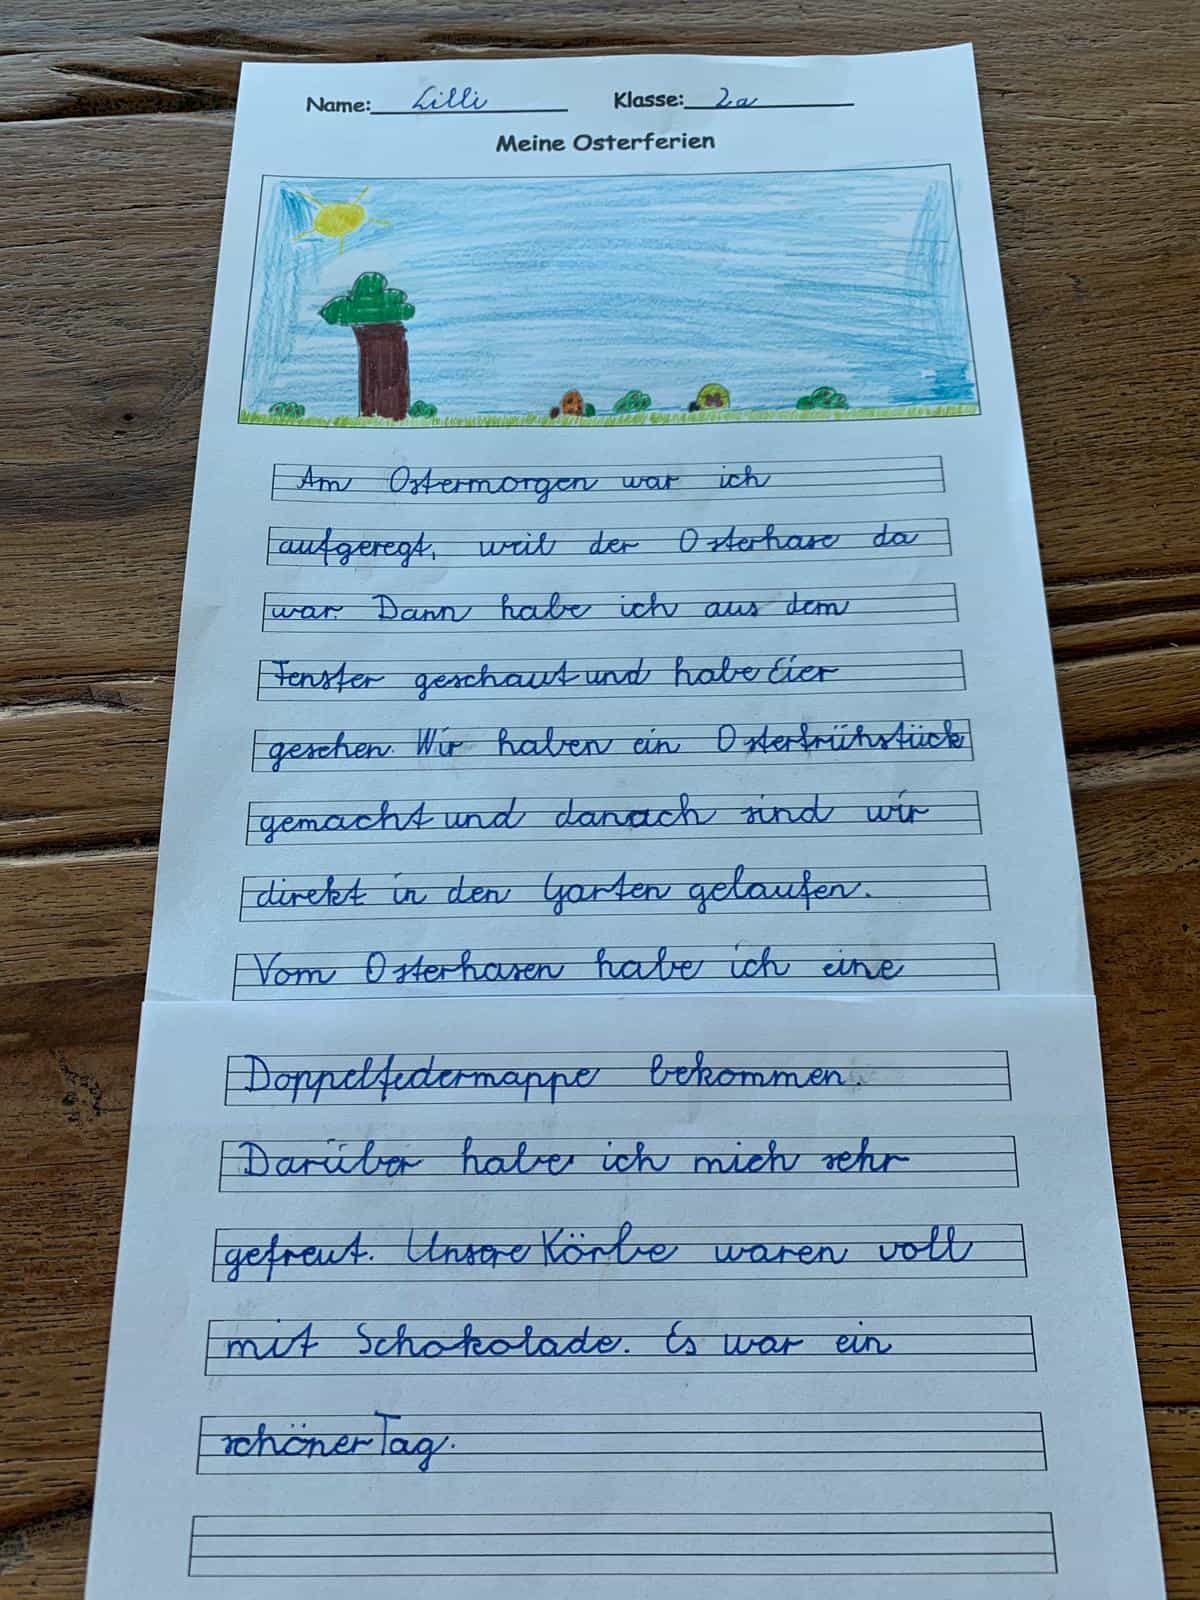 Name: Lilli Klasse: 2a
Meine Osterferien
Am Ostermorgen war ich
aufgeregt, weil der Osterhase da
war. Dann habe ich aus dem
Fenster geschaut und habe Eier
gesehen. Wir haben ein Osterfrühstück
gemacht und danach sind wir
direkt in den Garten gelaufen.
Vom Osterhasen habe ich eine
Doppelfedermappe bekommen.
Darüber habe ich mich sehr
gefreut. Unsere Körbe waren voll
mit Schokolade. Es war ein
schöner Tag.